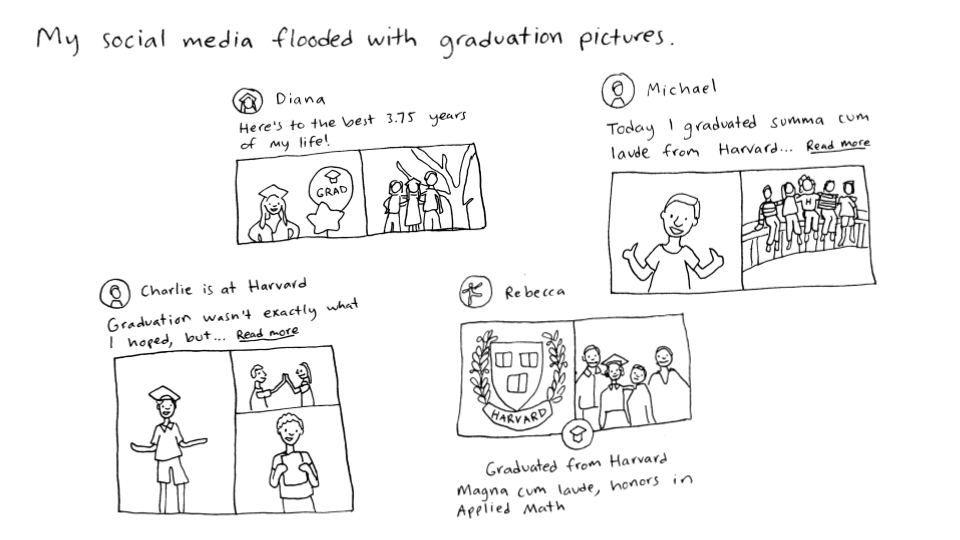 My social media flooded with graduation pictures.
Diana
Here's to the best 3.75 years
of my life!
GRAD
Michael
Today I graduated summa cum
laude from Harvard... Read more
H
Charlie is at Harvard
Graduation wasn't exactly what
I hoped, but... Read more
Rebecca
HARVARD
Graduated from Harvard
Magna cum laude, honors in
Applied Math